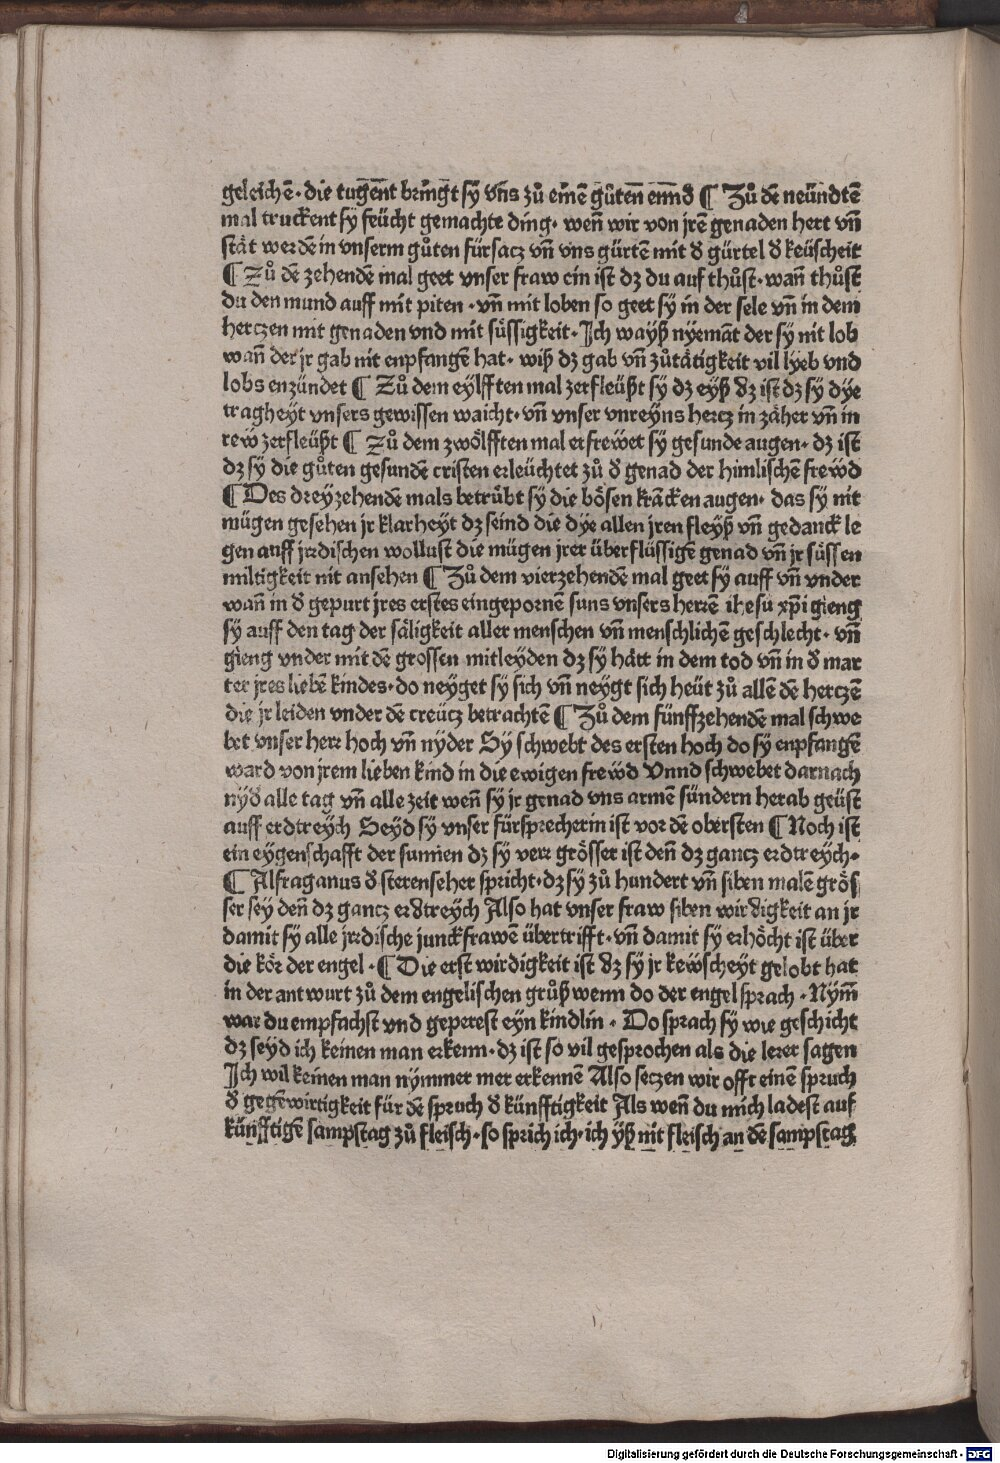 geleichē · die tugēnt bringt sÿ vn̄s zů einē gůten ennd ¶ Zů dē neündtē
mal truckent sÿ feücht gemachte ding · wen̄ wir von jrē genaden hert vn̄
stät werdē in vnserm gůten fürsacz vn̄ vns gürtē mit đ gürtel đ keüscheit
¶ Zů dē zehendē mal geet vnser fraw ein ist dz du auf thůst · wan̄ thůst
du den mund auff mit piten · vn̄ mit loben so geet sÿ in der sele vn̄ in dem
herczen mit genaden vnd mit süssigkeit · Ich wayß nyemāt der sÿ nit lob
wan̄ der jr gab nit enpfangē hat · wiß dz gab vn̄ zůtätigkeit vil lyeb vnd
lobs enzündet ¶ Zů dem eylfften mal zerfleüßt sÿ dz eyß dz ist dz sÿ dye
tragheyt vnsers gewissen waicht · vn̄ vnser vnreyns hercz in zäher vn̄ in
rew zerfleüßt ¶ Zů dem zwölfften mal erfrewet sÿ gesunde augen · dz ist
dz sÿ die gůten gesundē cristen erleüchtet zů đ genad der himlischē frewd
¶ Des dreyzehendē mals betrůbt sÿ die bösen krācken augen · das sÿ nit
mügen gesehen jr klarheyt dz seind die dye allen jren fleyß vn̄ gedanck le
gen auff jrdischen wollust die mügen jrer überflüssigē genad vn̄ jr süssen
miltigkeit nit ansehen ¶ Zů dem vierzehendē mal geet sÿ auff vn̄ vnder
wan̄ in đ gepurt jres erstes eingepornē suns vnsers herrē ihesu xp̄i gieng
sÿ auff den tag der säligkeit aller menschen vn̄ menschlichē geschlecht · vn̄
gieng vnder mit dē grossen mitleyden dz sÿ hätt in dem tod vn̄ in đ mar
ter jres liebē kindes · do neyget sÿ sich vn̄ neygt sich heüt zů allē dē herczē
die jr leiden vnder dē creücz betrachtē ¶ Zů dem fünffzehendē mal schwe
bet vnser herr hoch vn̄ nyder Sÿ schwebt des ersten hoch do sÿ enpfangē
ward von jrem lieben kind in die ewigen frewd Vnnd schwebet darnach
nyđ alle tag vn̄ alle zeit wen̄ sÿ jr genad vns armē sündern herab geüst
auff erdtreych Seyd sÿ vnser fürsprecherin ist vor dē obersten ¶ Noch ist
ein eygenschafft der sunnen dz sÿ verr grösser ist den̄ dz gancz erdtreych ·
¶ Alfraganus đ sterenseher spricht · dz sÿ zů hundert vn̄ siben malē grös
ser sey den̄ dz gancz erdtreych Also hat vnser fraw siben wirdigkeit an jr
damit sÿ alle jrdische junckfrawē übertrifft · vn̄ damit sÿ erhöcht ist über
die kör der engel · ¶ Die erst wirdigkeit ist dz sÿ jr kewscheyt gelobt hat
in der antwurt zů dem engelischen grůß wenn do der engel sprach · Nym̄
war du empfachst vnd geperest eyn kindlin · Do sprach sÿ wie geschicht
dz seyd ich keinen man erkenn · dz ist so vil gesprochen als die lerer sagen
Ich wil keinen man nymmer mer erkennē Also seczen wir offt einē spruch
đ gegēwirtigkeit für dē spruch đ künfftigkeit Als wen̄ du mich ladest auf
künfftigē sampstag zů fleisch · so sprich ich · ich yß nit fleisch an dē sampstag
Digitalisierung gefördert durch die Deutsche Forschungsgemeinschaft - DFG